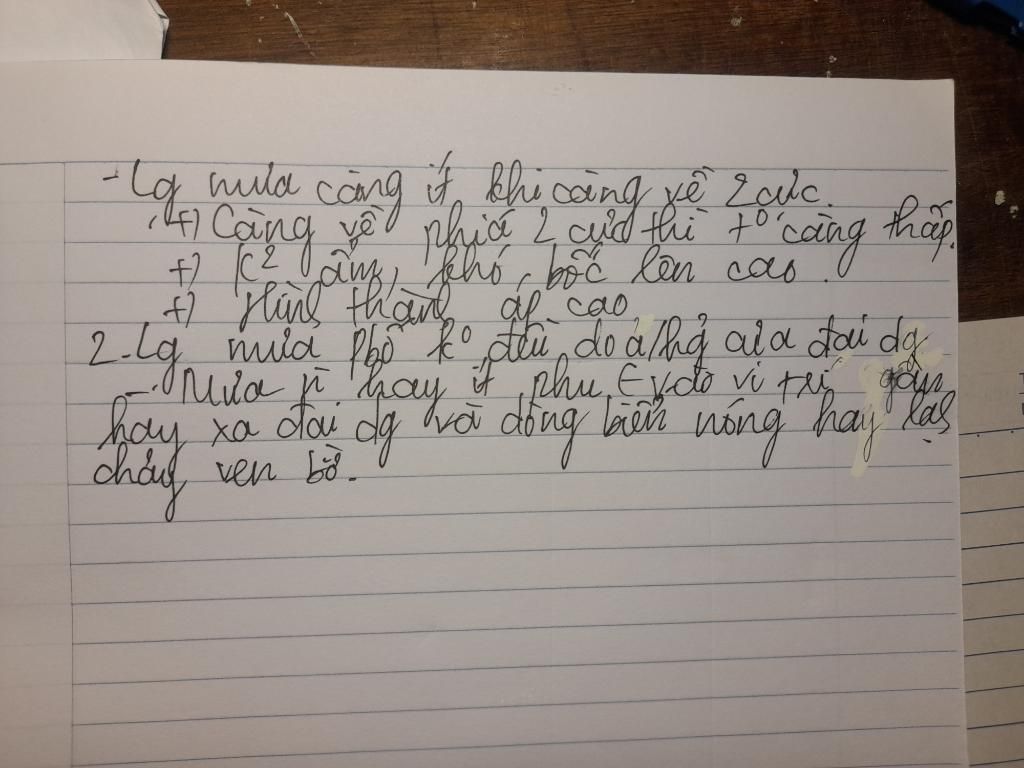 - Lg mưa càng ít khi càng về 2 cực.
+) Càng về phía 2 cực thì t° càng thấp.
+) K² ẩm, khó bốc lên cao.
+) Hình thành áp cao
2 - Lg mưa phbố k° đều do a/hg của đại dg
- Mưa nhiều hay ít phụ t vào vị trí gần
hay xa đại dg và dòng biển nóng hay lạnh
chảy ven bờ.